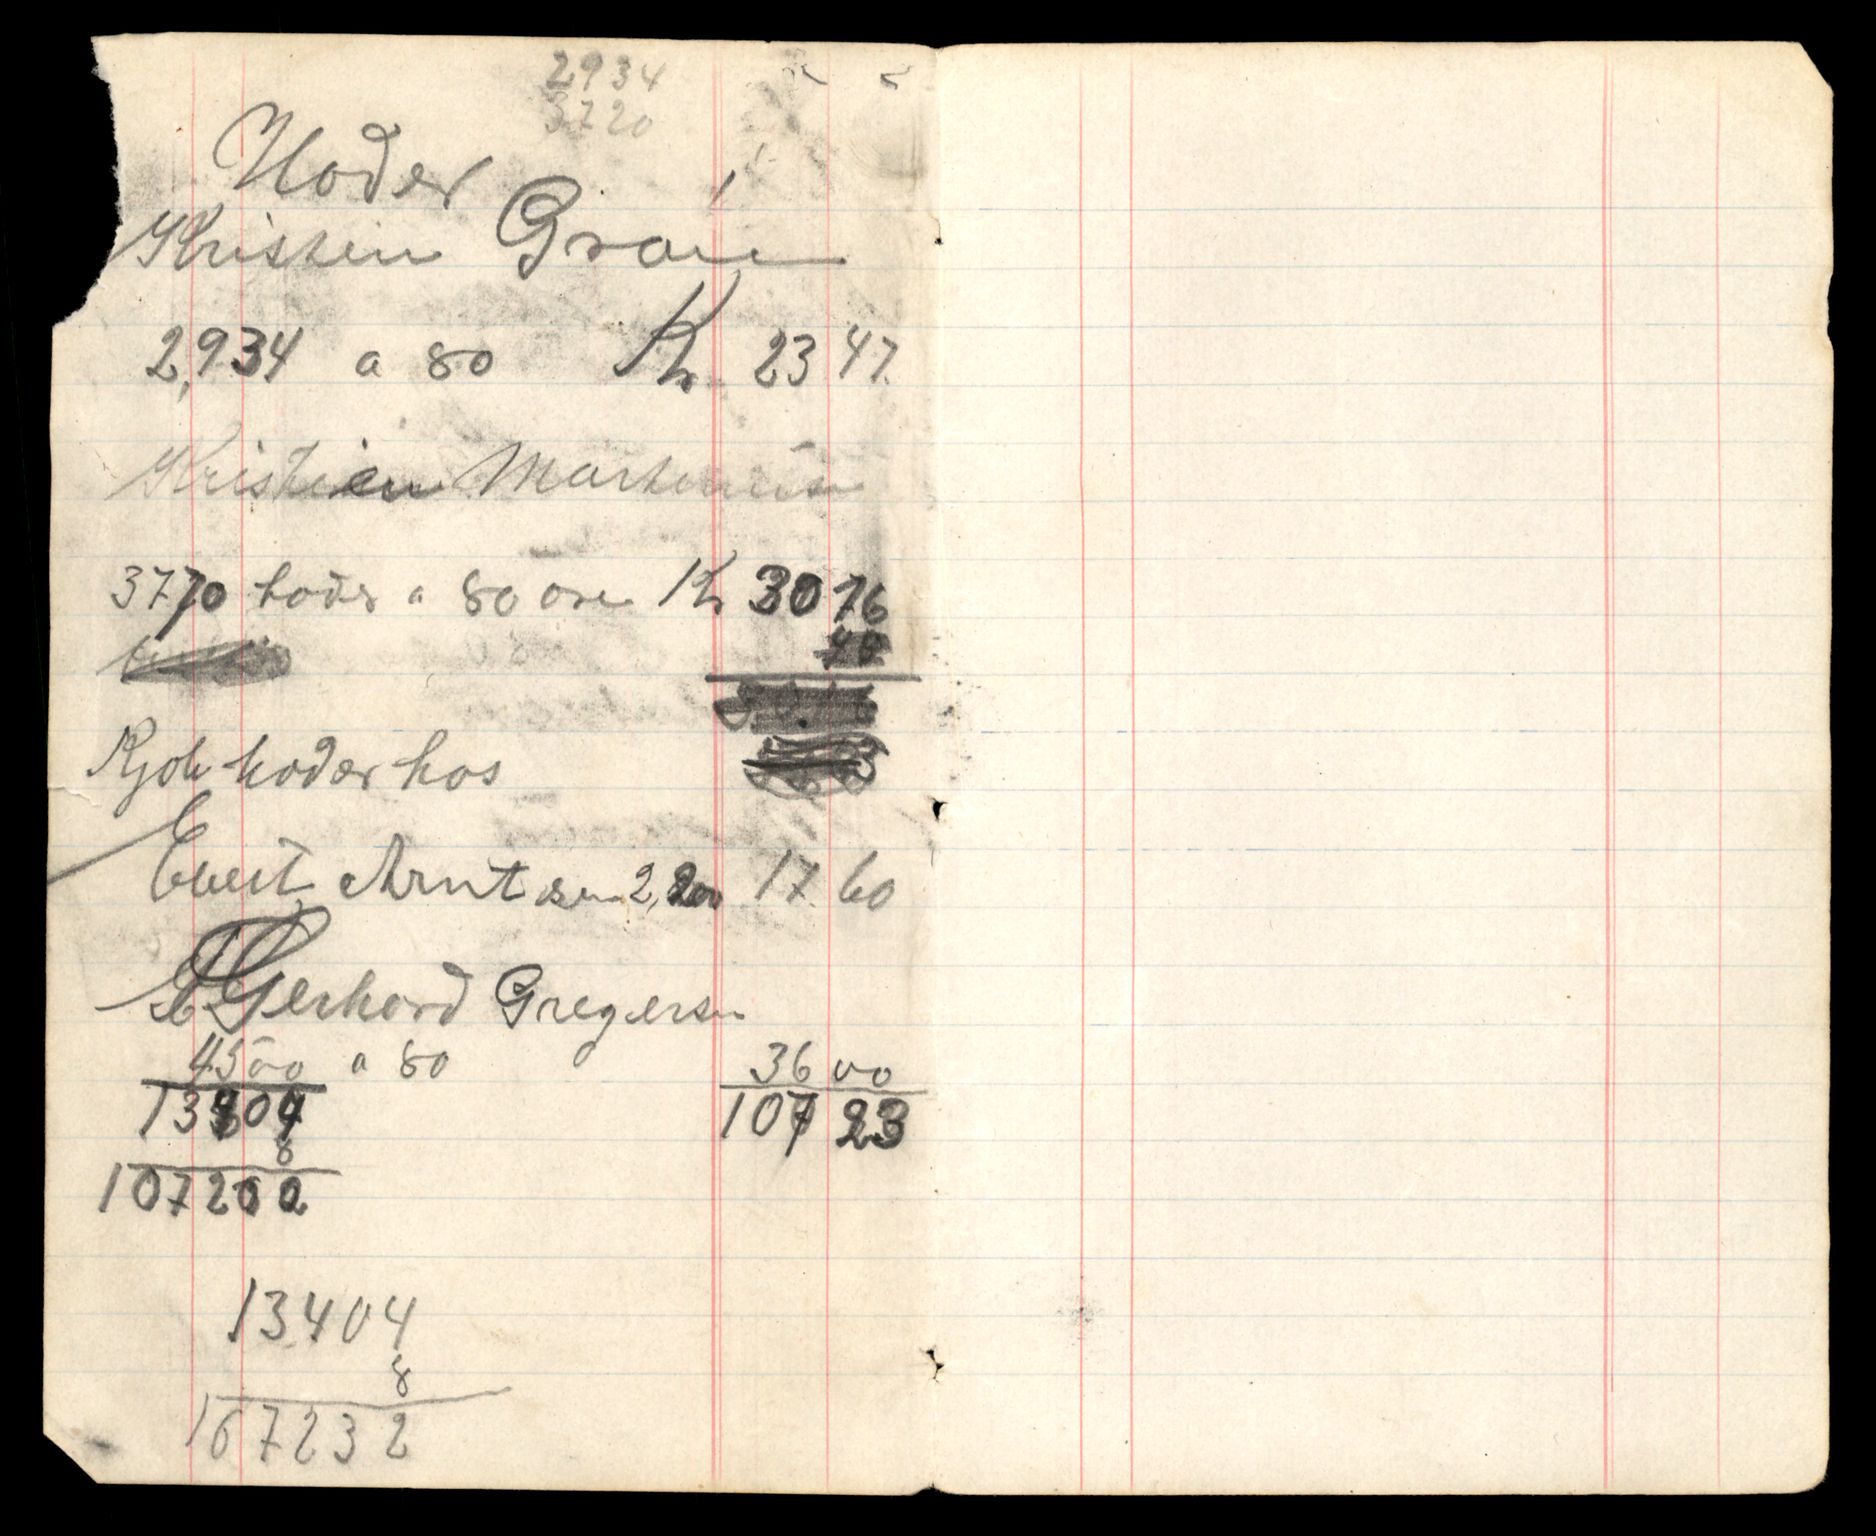 2934
3720
Hoder
Kristen Grøn
2,934 a 80 Kr 23 47.
Kristien Martenusen
3770 hoder a 80 øre Kr 30 16
Kjøbt hoder hos
Evert Arntsen 2,200 17.60
Gerhard Gregersen
4500 a 80 36 00
13404 107 23
8
107202
13404
8
107232